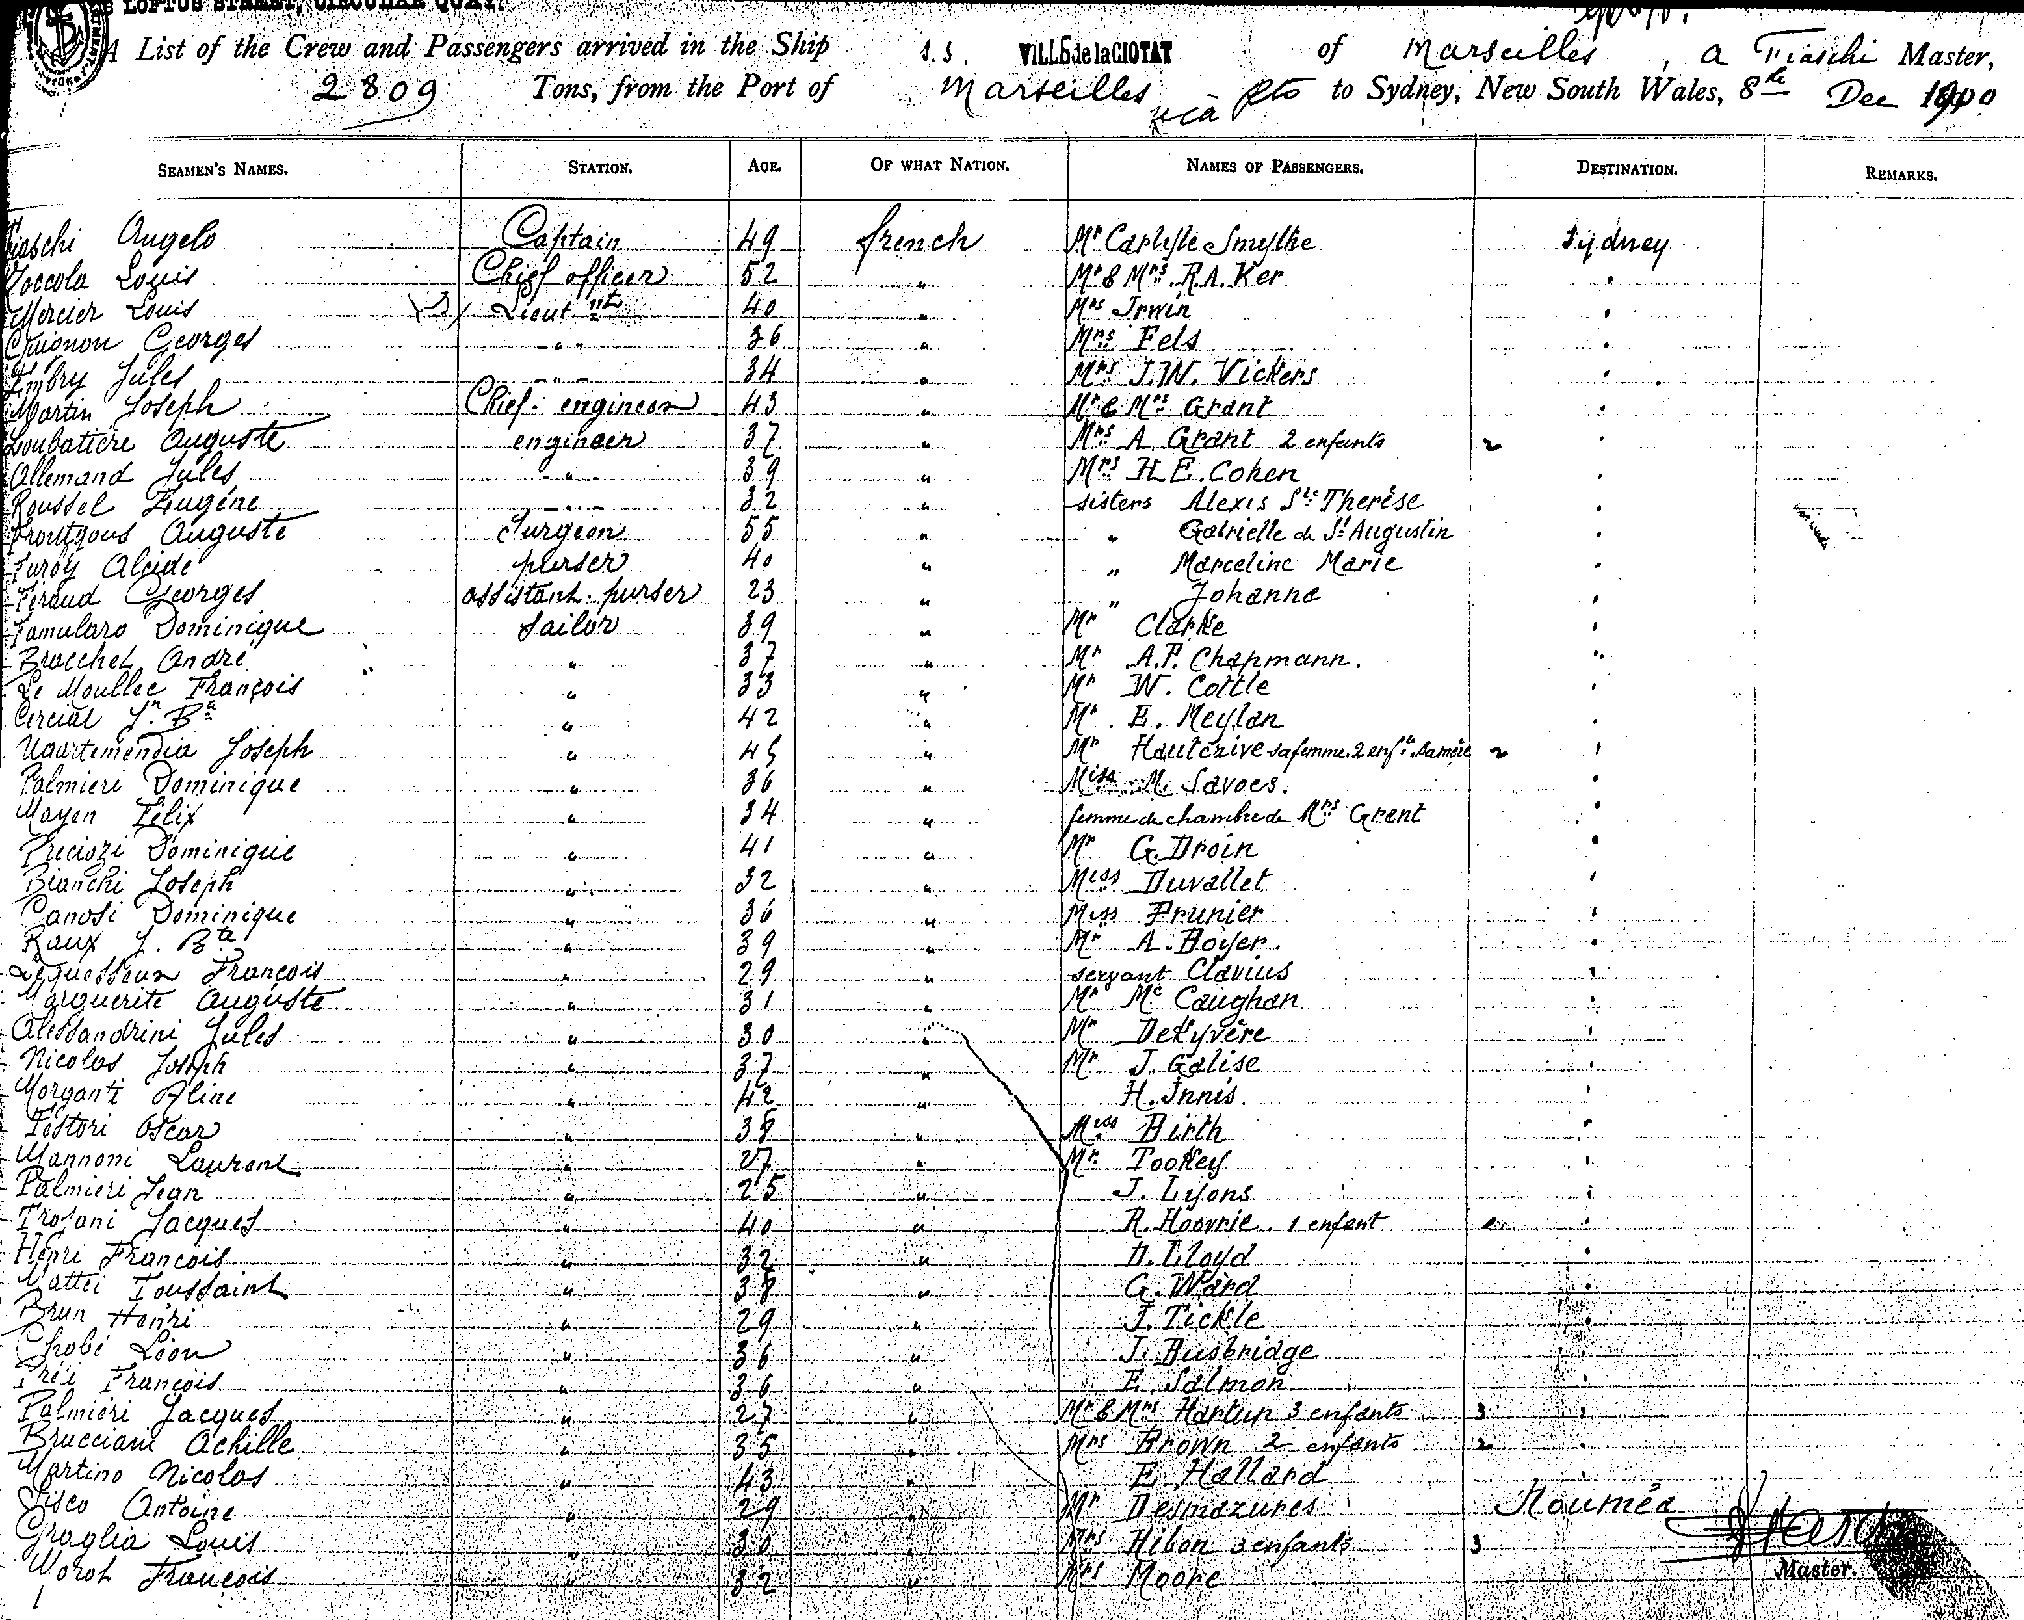 LOFTUS STREET, CIRCULAR QUAY.
A List of the Crew and Passengers arrived in the Ship S.S. VILLE de la CIOTAT of Marseilles, a Fiaschi Master,
2809 Tons, from the Port of Marseilles via pts to Sydney, New South Wales, 8th Dec 1900
SEAMEN'S NAMES. STATION. AGE. OF WHAT NATION. NAMES OF PASSENGERS. DESTINATION. REMARKS.
Fiaschi Angelo Captain 49 french Mr Carlyle Smythe Sydney
Toccola Louis Chief officer 52 " Mr & Mrs R.A. Ker "
Mercier Louis (3) Lieutnt 40 " Mrs Irwin "
Georges " 36 " Mrs Fels "
Jules " 34 " Mrs J.W. Vickers "
Martin Joseph Chief engineer 43 " Mr & Mrs Grant "
Loubatière Auguste engineer 37 " Mrs A Grant 2 enfants 2 "
Allemand Jules " 39 " Mrs H.E. Cohen "
Roussel Eugène " 32 " sisters Alexis Ste Therèse "
Auguste Surgeon 55 " " Gabrielle de St Augustin "
Alcide purser 40 " " Marceline Marie "
Feraud Georges assistant purser 23 " " Johanne "
Famularo Dominique Sailor 39 " Mr Clarke "
Brocchet André " 37 " Mr A.F. Chapmann. "
Le Moullec François " 33 " Mr W. Cottle "
Cercial Jn Bte " 42 " Mr E. Meylan "
Uhartemendia Joseph " 45 " Mr Hauterive sa femme 2 enfts sa mère 2 "
Palmieri Dominique " 36 " Miss M. Savoes. "
Mayen Félix " 34 " femme de chambre de Mrs Grant "
Preciozi Dominique " 41 " Mr G. Droin "
Bianchi Joseph " 32 " Miss Duvallet "
Canosi Dominique " 36 " Miss Prunier "
Raux J. Bte " 39 " Mr A. Boyer. "
Lequesseur François " 29 " servant Clavius "
Marguerite Auguste " 31 " Mr Mc Caughan "
Alessandrini Jules " 30 " Mr DeKyvère "
Nicolas Joseph " 37 " Mr J. Galise "
Morganti Aline " 42 " H. Innis. "
Testori Oscar " 38 " Miss Birth "
Mannoni Laurent " 27 " Mr Tookey "
Palmieri Jean " 25 " J. Lyons "
Trojani Jacques " 40 " R. Hoovrie. 1 enfant "
Henri François " 32 " D. Lloyd "
Mattei Toussaint " 38 " G. Ward "
Brun Henri " 29 " J. Tickle "
Léon " 36 " J. Busbridge "
Préi François " 36 " E. Salmon "
Palmieri Jacques " 27 " Mr & Mrs Hartup 3 enfants 3 "
Brucciani Achille " 35 " Mrs Brown 2 enfants 2 "
Martino Nicolas " 43 " E. Hallard
Sisco Antoine " 29 " Mr Desmazures Nouméa
Graglia Louis " 30 " Mrs Hibon 3 enfants 3
Morot François " 32 " Mrs Moore
Master.